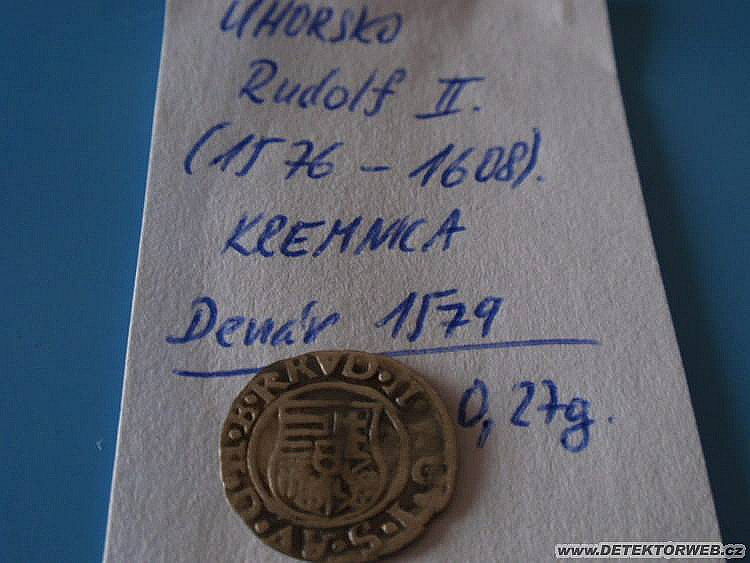 UHORSKO
Rudolf II.
(1576 - 1608).
KREMNICA
Denár 1579
0,27g.
RVD·II
www.DETEKTORWEB.cz